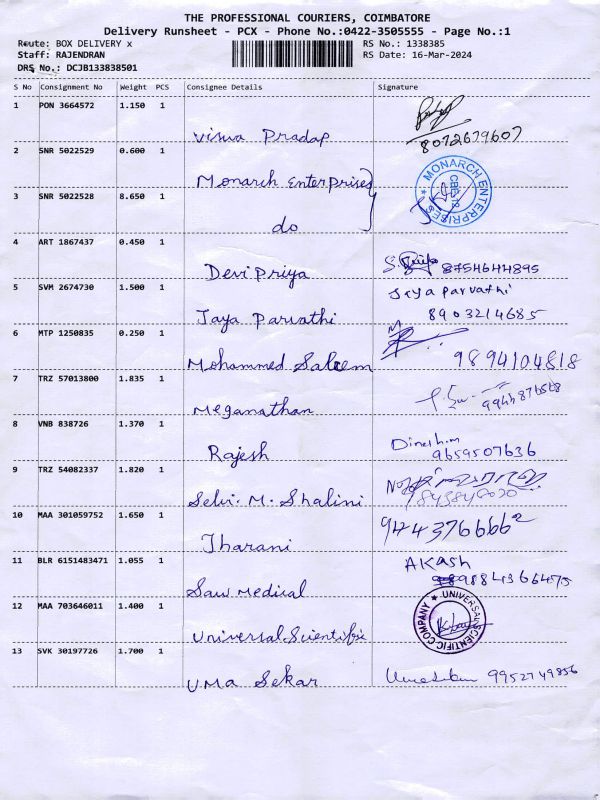 THE PROFESSIONAL COURIERS, COIMBATORE
Delivery Runsheet - PCX - Phone No.:0422-3505555 - Page No.:1
Route: BOX DELIVERY x
RS No.: 1338385
Staff: RAJENDRAN
RS Date: 16-Mar-2024
DRS No.: DCJB133838501
S No Consignment No Weight PCS Consignee Details Signature
1 PON 3664572 1.150 1
Viswa Pradap 8072679607
2 SNR 5022529 0.600 1
Monarch Enterprises
MONARCH ENTERPRISES
CBE-12
3 SNR 5022528 8.650 1
do
4 ART 1867437 0.450 1
Devi Priya 8754644895
5 SVM 2674730 1.500 1
Jaya Parvathi
Jaya Parvathi 8903214685
6 MTP 1250835 0.250 1
Mohammed Saleem 9894104818
7 TRZ 57013800 1.835 1
Meganathan
8 VNB 838726 1.370 1
Dinesh.m
Rajesh 9659507636
9 TRZ 54082337 1.820 1
Selvi. M. Shalini
10 MAA 301059752 1.650 1
9443766662
Tharani
11 BLR 6151483471 1.055 1
AKash
Saw Medical
12 MAA 703646011 1.400 1
UNIVERSAL SCIENTIFIC COMPANY
Universal Scientific
13 SVK 30197726 1.700 1
Uma Sekar 9952749856